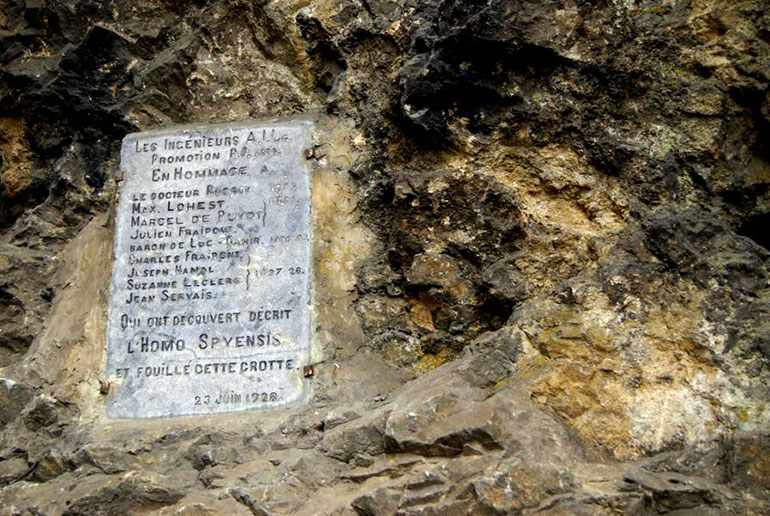 LES INGÉNIEURS A.I.LG.
PROMOTION
EN HOMMAGE A
LE DOCTEUR RUCQOY
MAX. LOHEST
MARCEL DE PUYDT
JULIEN FRAIPONT
BARON DE LOË
CHARLES FRAIPONT
JOSEPH HAMAL
SUZANNE LECLERC } 1927 28
JEAN SERVAIS.
QUI ONT DÉCOUVERT DÉCRIT
L'HOMO SPYENSIS
ET FOUILLÉ CETTE GROTTE.
23 JUIN 1928